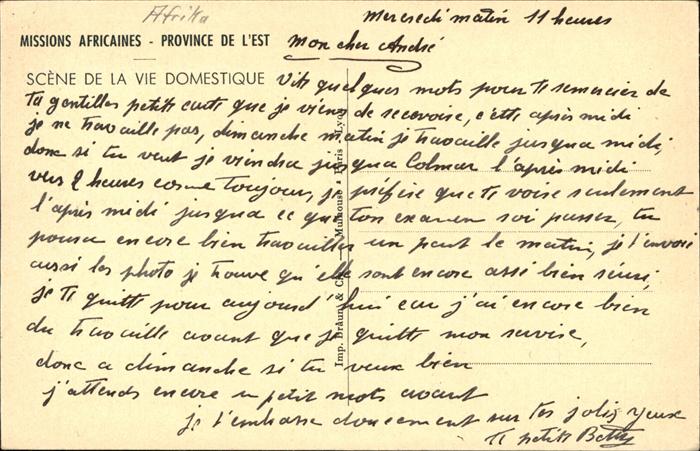 Afrika
Mercredi matin 11 heures
MISSIONS AFRICAINES - PROVINCE DE L'EST
Mon cher André
SCÈNE DE LA VIE DOMESTIQUE
Vite quelques mots pour te remercier de
ta gentilles petite carte que je viens de recevoire, cette après midi
je ne travaille pas, dimanche matin je travaille jusqua midi,
donc si tu veut je viendra jusqua Colmar l'après midi
vers 2 heures come toujours, je préfère que te voire seulement
l'après midi jusqua ce que ton examen soi passer, tu
poura encore bien travailler un peut le matin, je t'envoie
aussi les photo je trouve qu'elle sont encore assé bien réussi,
je te quitte pour aujourd'hui car j'ai encore bien
du travaille avant que je quitte mon servise,
donc a dimanche si tu veux bien
j'attends encore un petit mots avant
je t'embrasse doucement sur tes jolis yeux
Te petite Betty
Imp. Braun & C Mulhouse - Paris - Lyon